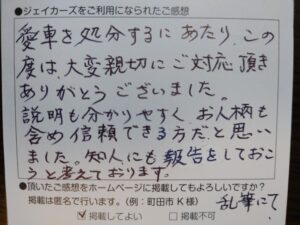 ●ジェイカーズをご利用になられたご感想
愛車を処分するにあたり、この
度は、大変親切にご対応頂き
ありがとうございました。
説明も分かりやすく、お人柄も
含め信頼できる方だと思い
ました。知人にも報告をしておこ
うと考えております。
●頂いたご感想をホームページに掲載してもよろしいですか?
掲載は匿名で行います。(例:町田市K様)
乱筆にて
☑掲載してよい □掲載不可